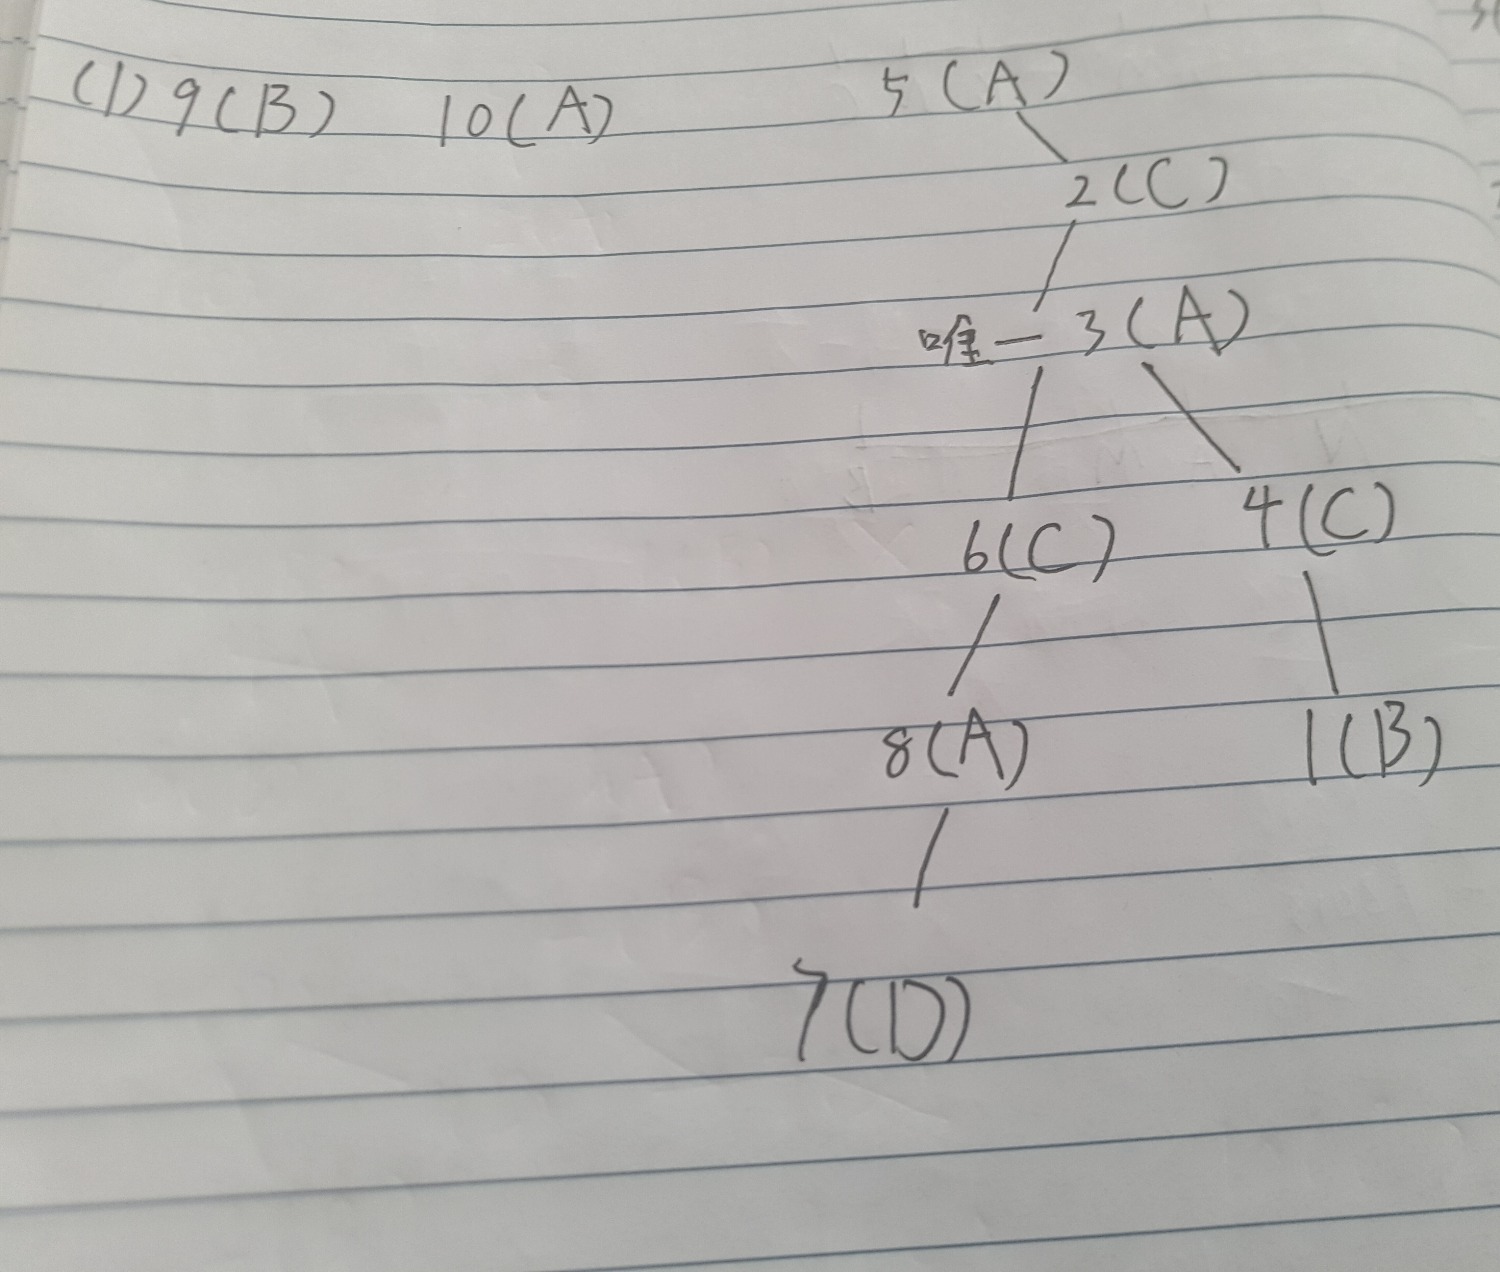 (1) 9(B) 10(A) 5(A)
2(C)
唯一 3(A)
6(C) 4(C)
8(A) 1(B)
7(D)